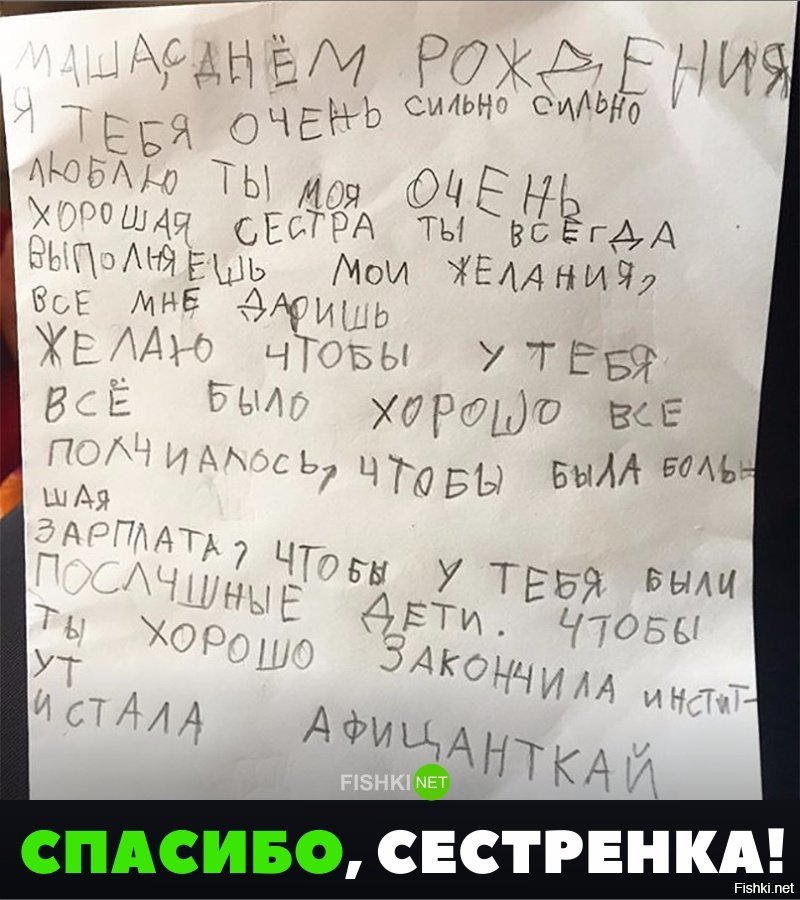 МАША, С ДНЁМ РОЖДЕНИЯ
Я ТЕБЯ ОЧЕНЬ СИЛЬНО СИЛЬНО
ЛЮБЛЮ ТЫ МОЯ ОЧЕНЬ
ХОРОШАЯ СЕСТРА ТЫ ВСЕГДА
ВЫПОЛНЯЕШЬ МОИ ЖЕЛАНИЯ,
ВСЕ МНЕ ДАРИШЬ
ЖЕЛАЮ ЧТОБЫ У ТЕБЯ
ВСЁ БЫЛО ХОРОШО ВСЕ
ПОЛЧИАЛОСЬ, ЧТОБЫ БЫЛА БОЛЬ-
ШАЯ
ЗАРПЛАТА, ЧТОБЫ У ТЕБЯ БЫЛИ
ПОСЛУШНЫЕ ДЕТИ. ЧТОБЫ
ТЫ ХОРОШО ЗАКОНЧИЛА ИНСТИТ-
УТ
И СТАЛА АФИЦАНТКАЙ
FISHKI NET
СПАСИБО, СЕСТРЕНКА!
Fishki.net